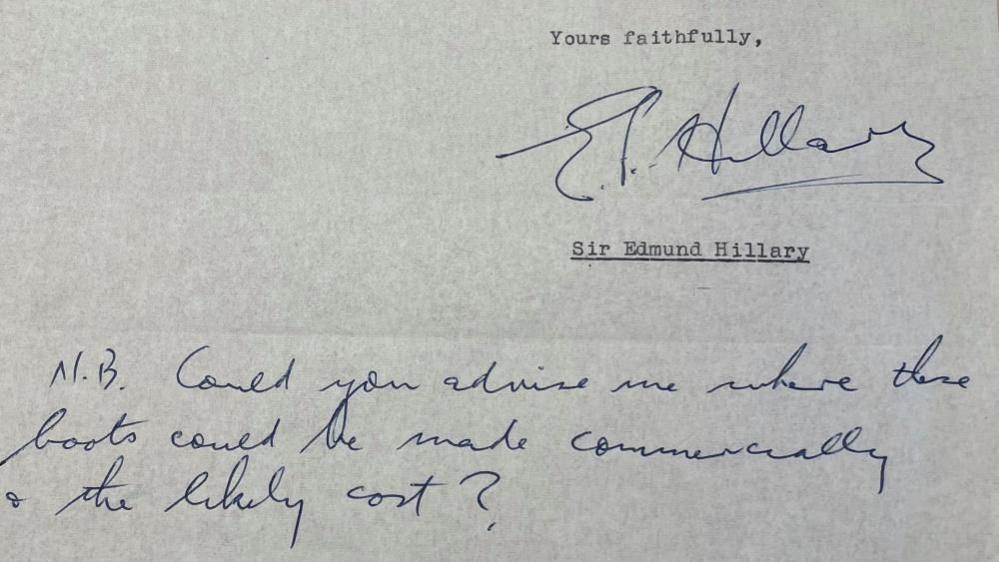 Yours faithfully,
E.P. Hillary
Sir Edmund Hillary
N.B. Could you advise me where these
boots could be made commercially
& the likely cost?